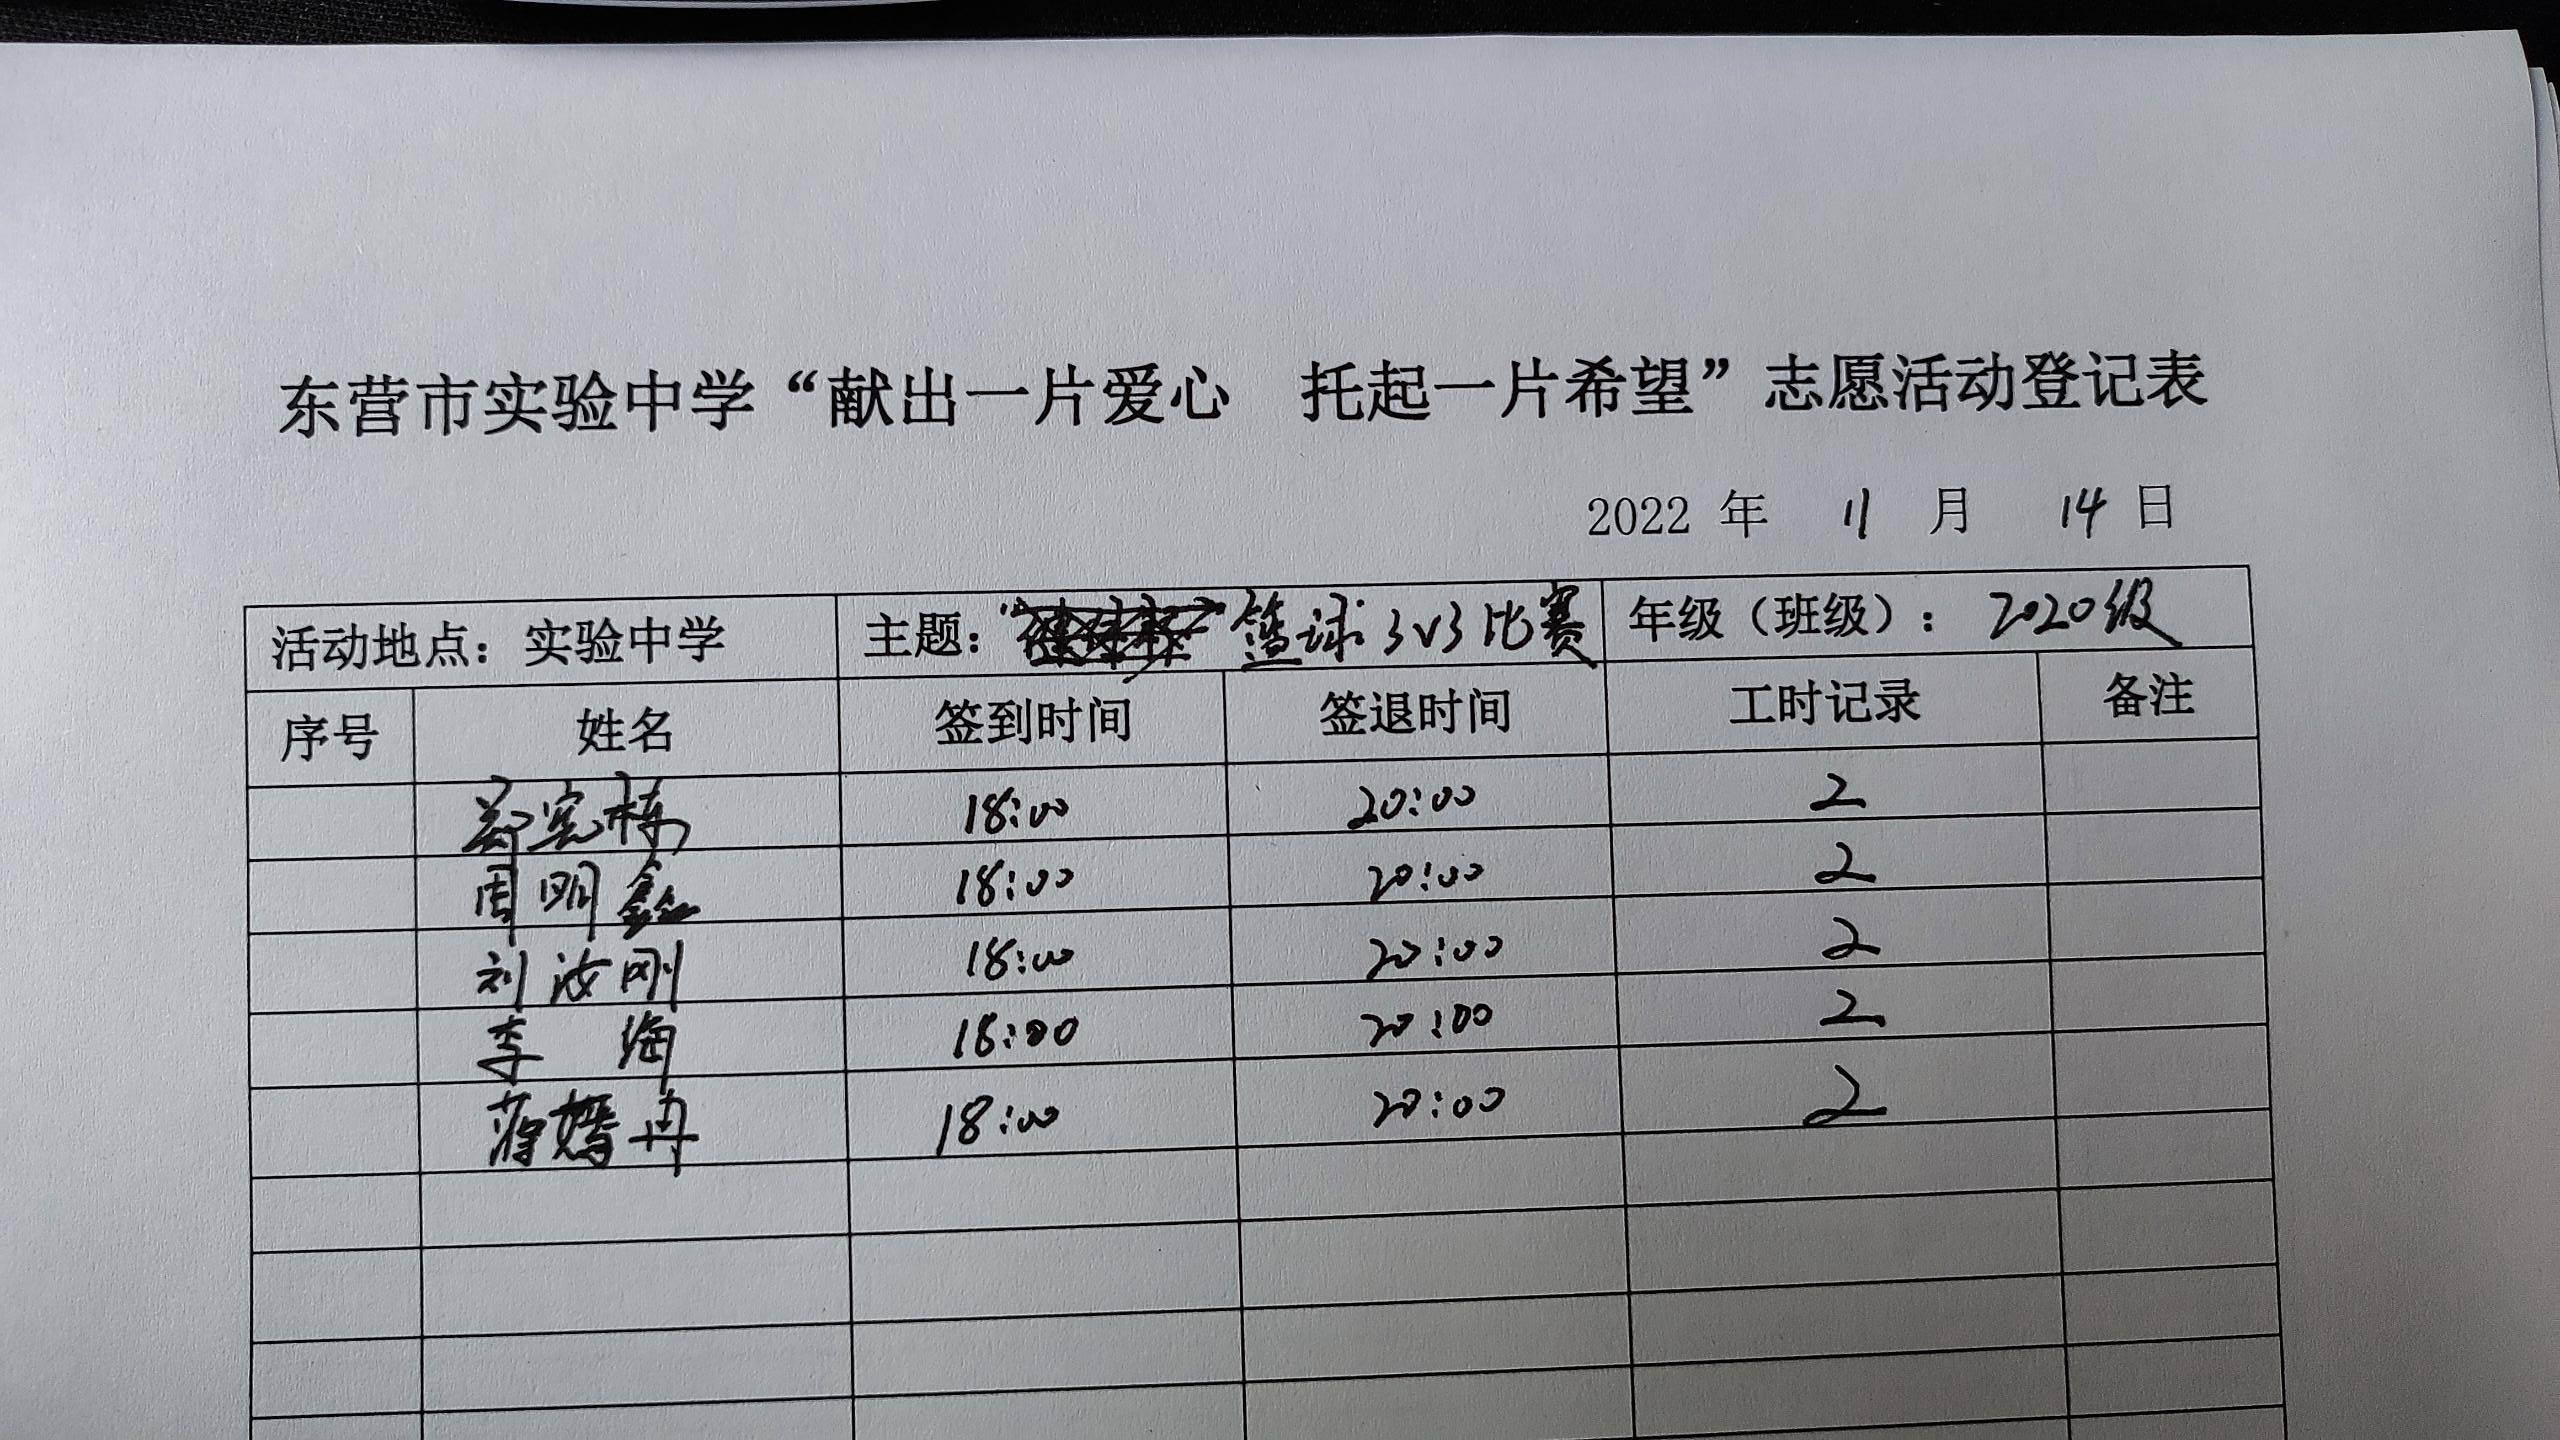 东营市实验中学“献出一片爱心 托起一片希望”志愿活动登记表
2022 年 11 月 14 日
活动地点：实验中学 主题： 篮球 3v3 比赛 年级（班级）： 2020级
序号 姓名 签到时间 签退时间 工时记录 备注
郑宪栋 18:00 20:00 2
周明鑫 18:00 20:00 2
刘汝刚 18:00 20:00 2
李海 18:00 20:00 2
蒋嫣冉 18:00 20:00 2